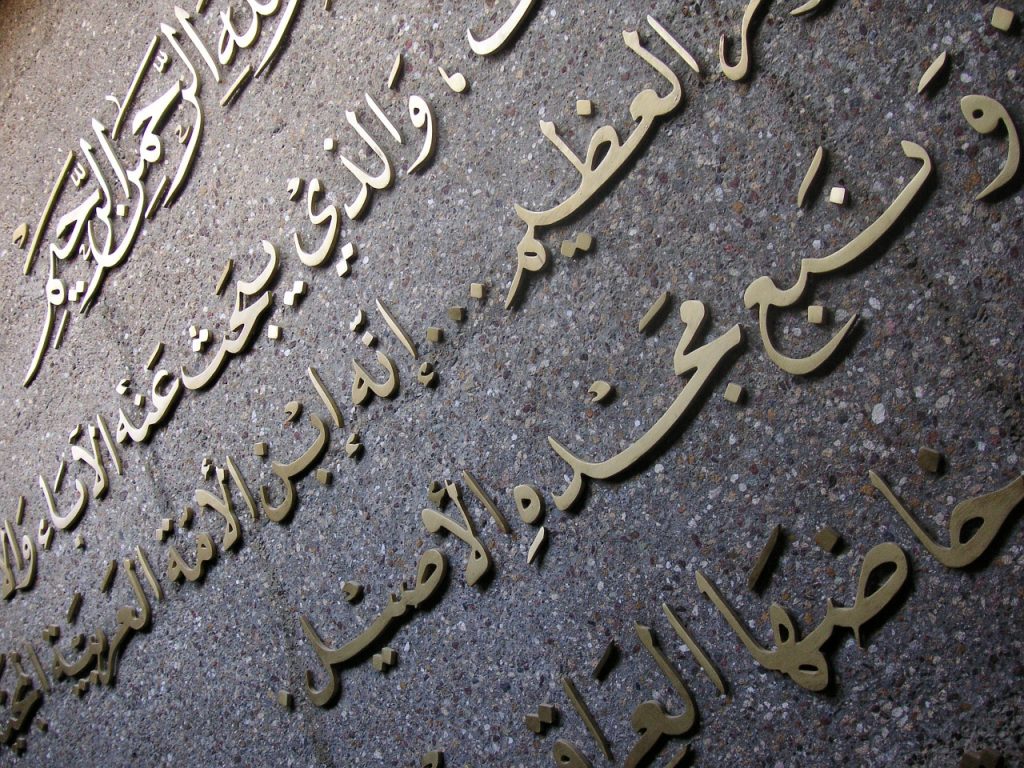 الله الرَّحْمنِ الرَّحِيمِ
، وَالذيْ يبحَث عَنْه الآبَاء
العظيم ... إنْه ابْن الأمَة العَربيَة
وَ نَبع مَجْدهِ الأصيْل.
حَاضنهَا